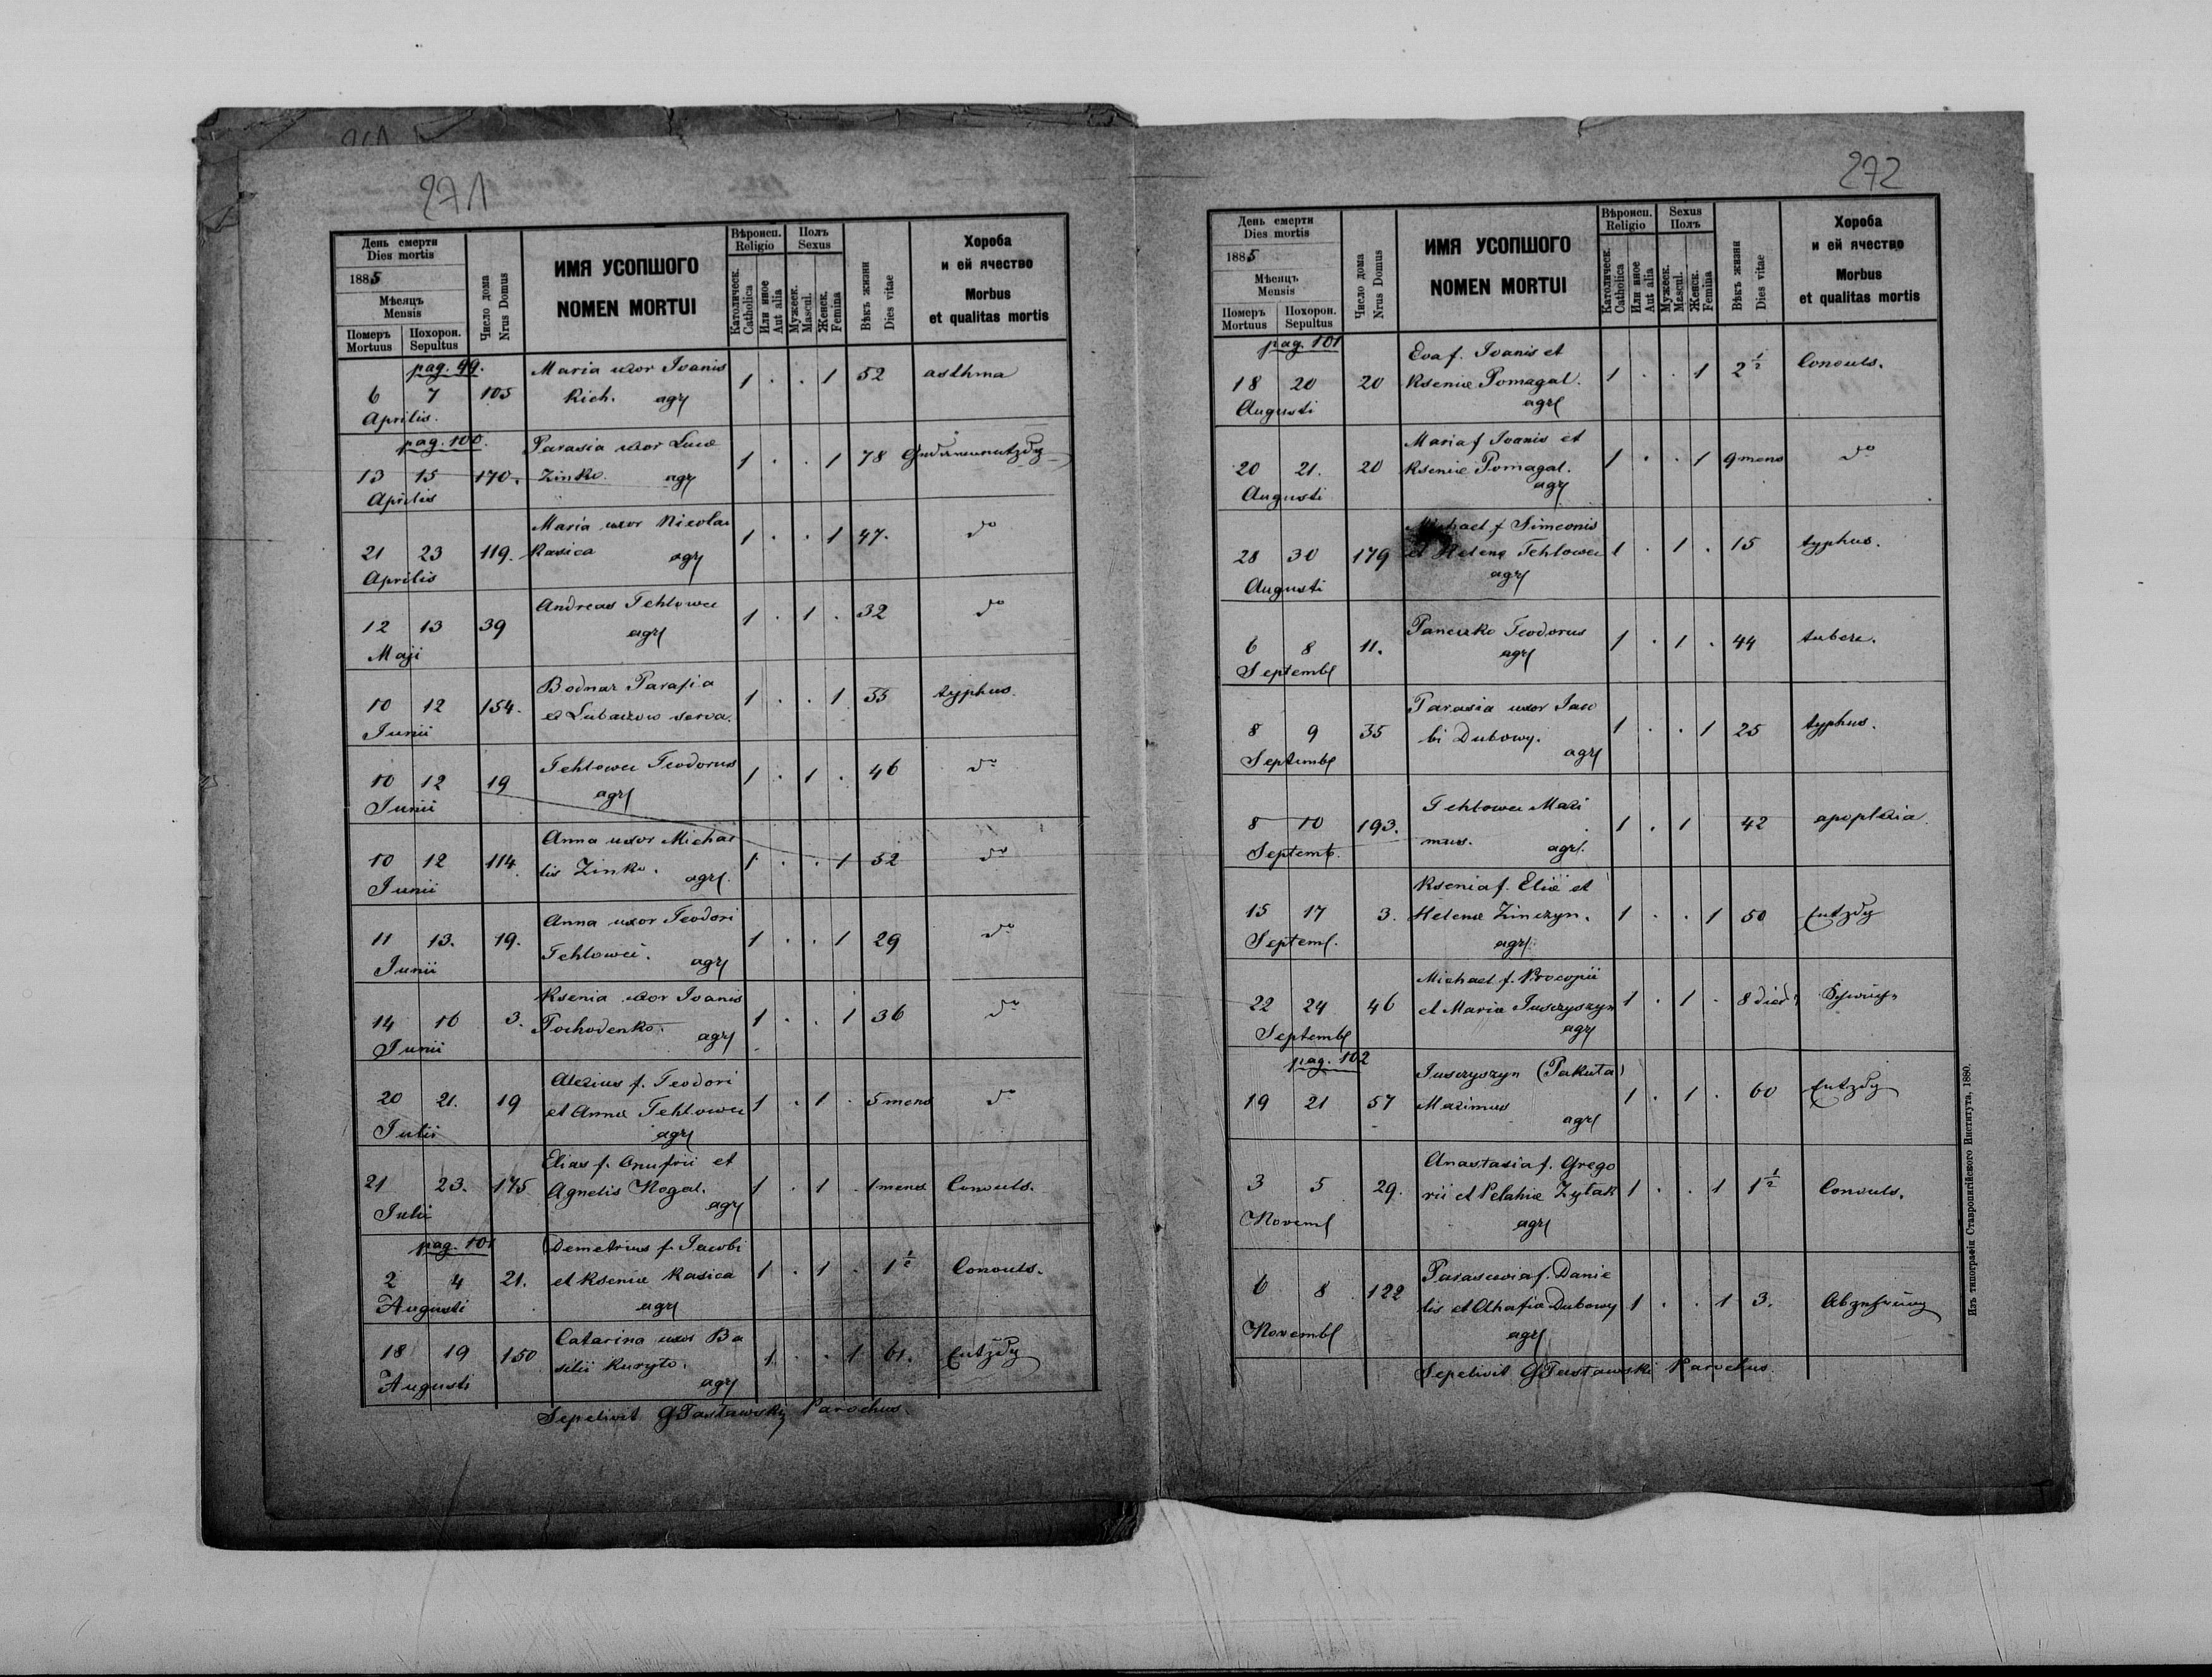 271
День смерти
Dies mortis
1885
Мѣсяцъ
Mensis
Померъ
Mortuus
Похорон.
Sepultus
Число дома
Nrus Domus
ИМЯ УСОПШОГО
NOMEN MORTUI
Вѣроисп.
Religio
Католическ.
Catholica
Или иное
Aut alia
Полъ
Sexus
Мужеск.
Mascul.
Женск.
Femina
Вѣкъ жизни
Dies vitae
Хороба
и ей ячество
Morbus
et qualitas mortis
pag. 99.
Maria uxor Ivanis
6 7 105 Rich. agr 1 . . 1 52 asthma
Aprilis.
pag. 100.
Parasia uxor Lucæ
13 15 170. Zinko. agr 1 . . 1 78
Aprilis
Maria uxor Nicolai
21 23 119. Kasica agr 1 . . 1 47. do
Aprilis
Andreas Tehlowec
12 13 39 agr 1 . 1 . 32 do
Maji
Bodnar Parasia
10 12 154. serva. 1 . . 1 35 typhus.
Junii
Tehlowec Teodorus
10 12 19 agr 1 . 1 . 46 do
Junii
Anna uxor Michae
10 12 114. lis Zinko. agr. 1 . . 1 52 do
Junii
Anna uxor Teodori
11 13. 19. Tehlowec. agr 1 . . 1 29 do
Junii
Ksenia uxor Ivanis
14 16 3. Pochodenko. agr 1 . . 1 36 do
Junii
Alexius f. Teodori
20 21. 19 et Annæ Tehlowec 1 . 1 . 5 mens do
Julii agr
Elias f. Onufrii et
21 23. 175 Agnetis Nogal. agr 1 . 1 . 1 mens Convuls.
Julii
pag. 101
Demetrius f. Jacobi
2 4 21. et Kseniæ Kasica 1 . 1 . 1 1/2 Convuls.
Augusti agr
Catarina uxor Ba
18 19 150 silii Kuryto. agr 1 . . 1 61.
Augusti
Sepelivit Parochus.
272
День смерти
Dies mortis
1885
Мѣсяцъ
Mensis
Померъ
Mortuus
Похорон.
Sepultus
Число дома
Nrus Domus
ИМЯ УСОПШОГО
NOMEN MORTUI
Вѣроисп.
Religio
Католическ.
Catholica
Или иное
Aut alia
Sexus
Полъ
Мужеск.
Mascul.
Женск.
Femina
Вѣкъ жизни
Dies vitae
Хороба
и ей ячество
Morbus
et qualitas mortis
pag. 101
Eva f. Ivanis et
18 20 20 Kseniæ Pomagal. 1 . . 1 2 1/2 Convuls.
Augusti agr
Maria f Ivanis et
20 21. 20 Kseniæ Pomagal. 1 . . 1 9 mens do
Augusti agr
Michael f Simeonis
28 30 179 et Helenæ Tehlowec 1 . 1 . 15 typhus.
Augusti agr
Paneczko Teodorus
6 8 11. agr 1 . 1 . 44 taberc.
Septemb
Parasia uxor Jaco
8 9 35 bi Dubowy. agr 1 . . 1 25 typhus.
Septemb
Tehlowec Maxi
8 10 193. mus. agr. 1 . 1 42 apoplexia.
Septemb.
Ksenia f. Eliæ et
15 17 3. Helenæ Zinczyn. 1 . . 1 50
Septem. agr.
Michael f. Procopii
22 24 46 et Mariæ Juszyszyn 1 . 1 . 8 dies
Septemb agr
pag. 102
Juszyszyn (Pakuta)
19 21 57 Maximus agr 1 . 1 . 60
Anastasia f. Grego
3 5 29. rii et Pelahiæ Zytak 1 . . 1 1 1/2 Convuls.
Novem agr
Parascevia f. Danie
6 8 122 lis et Ahafiæ Dubowy 1 . . 1 3.
Novemb agr
Sepelivit Parochus.
Изъ типографіи Ставропигійского Института, 1880.